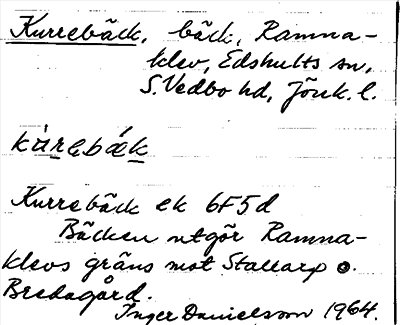 Kurrebäck, bäck, Ramna-
klev, Edshults sn,
S. Vedbo hd, Jönk. l.
kùrebǽk
Kurrebäck ek 6F5d
Bäcken utgör Ramna-
klevs gräns mot Stallarp o.
Bredagård.
Inger Danielsson 1964.